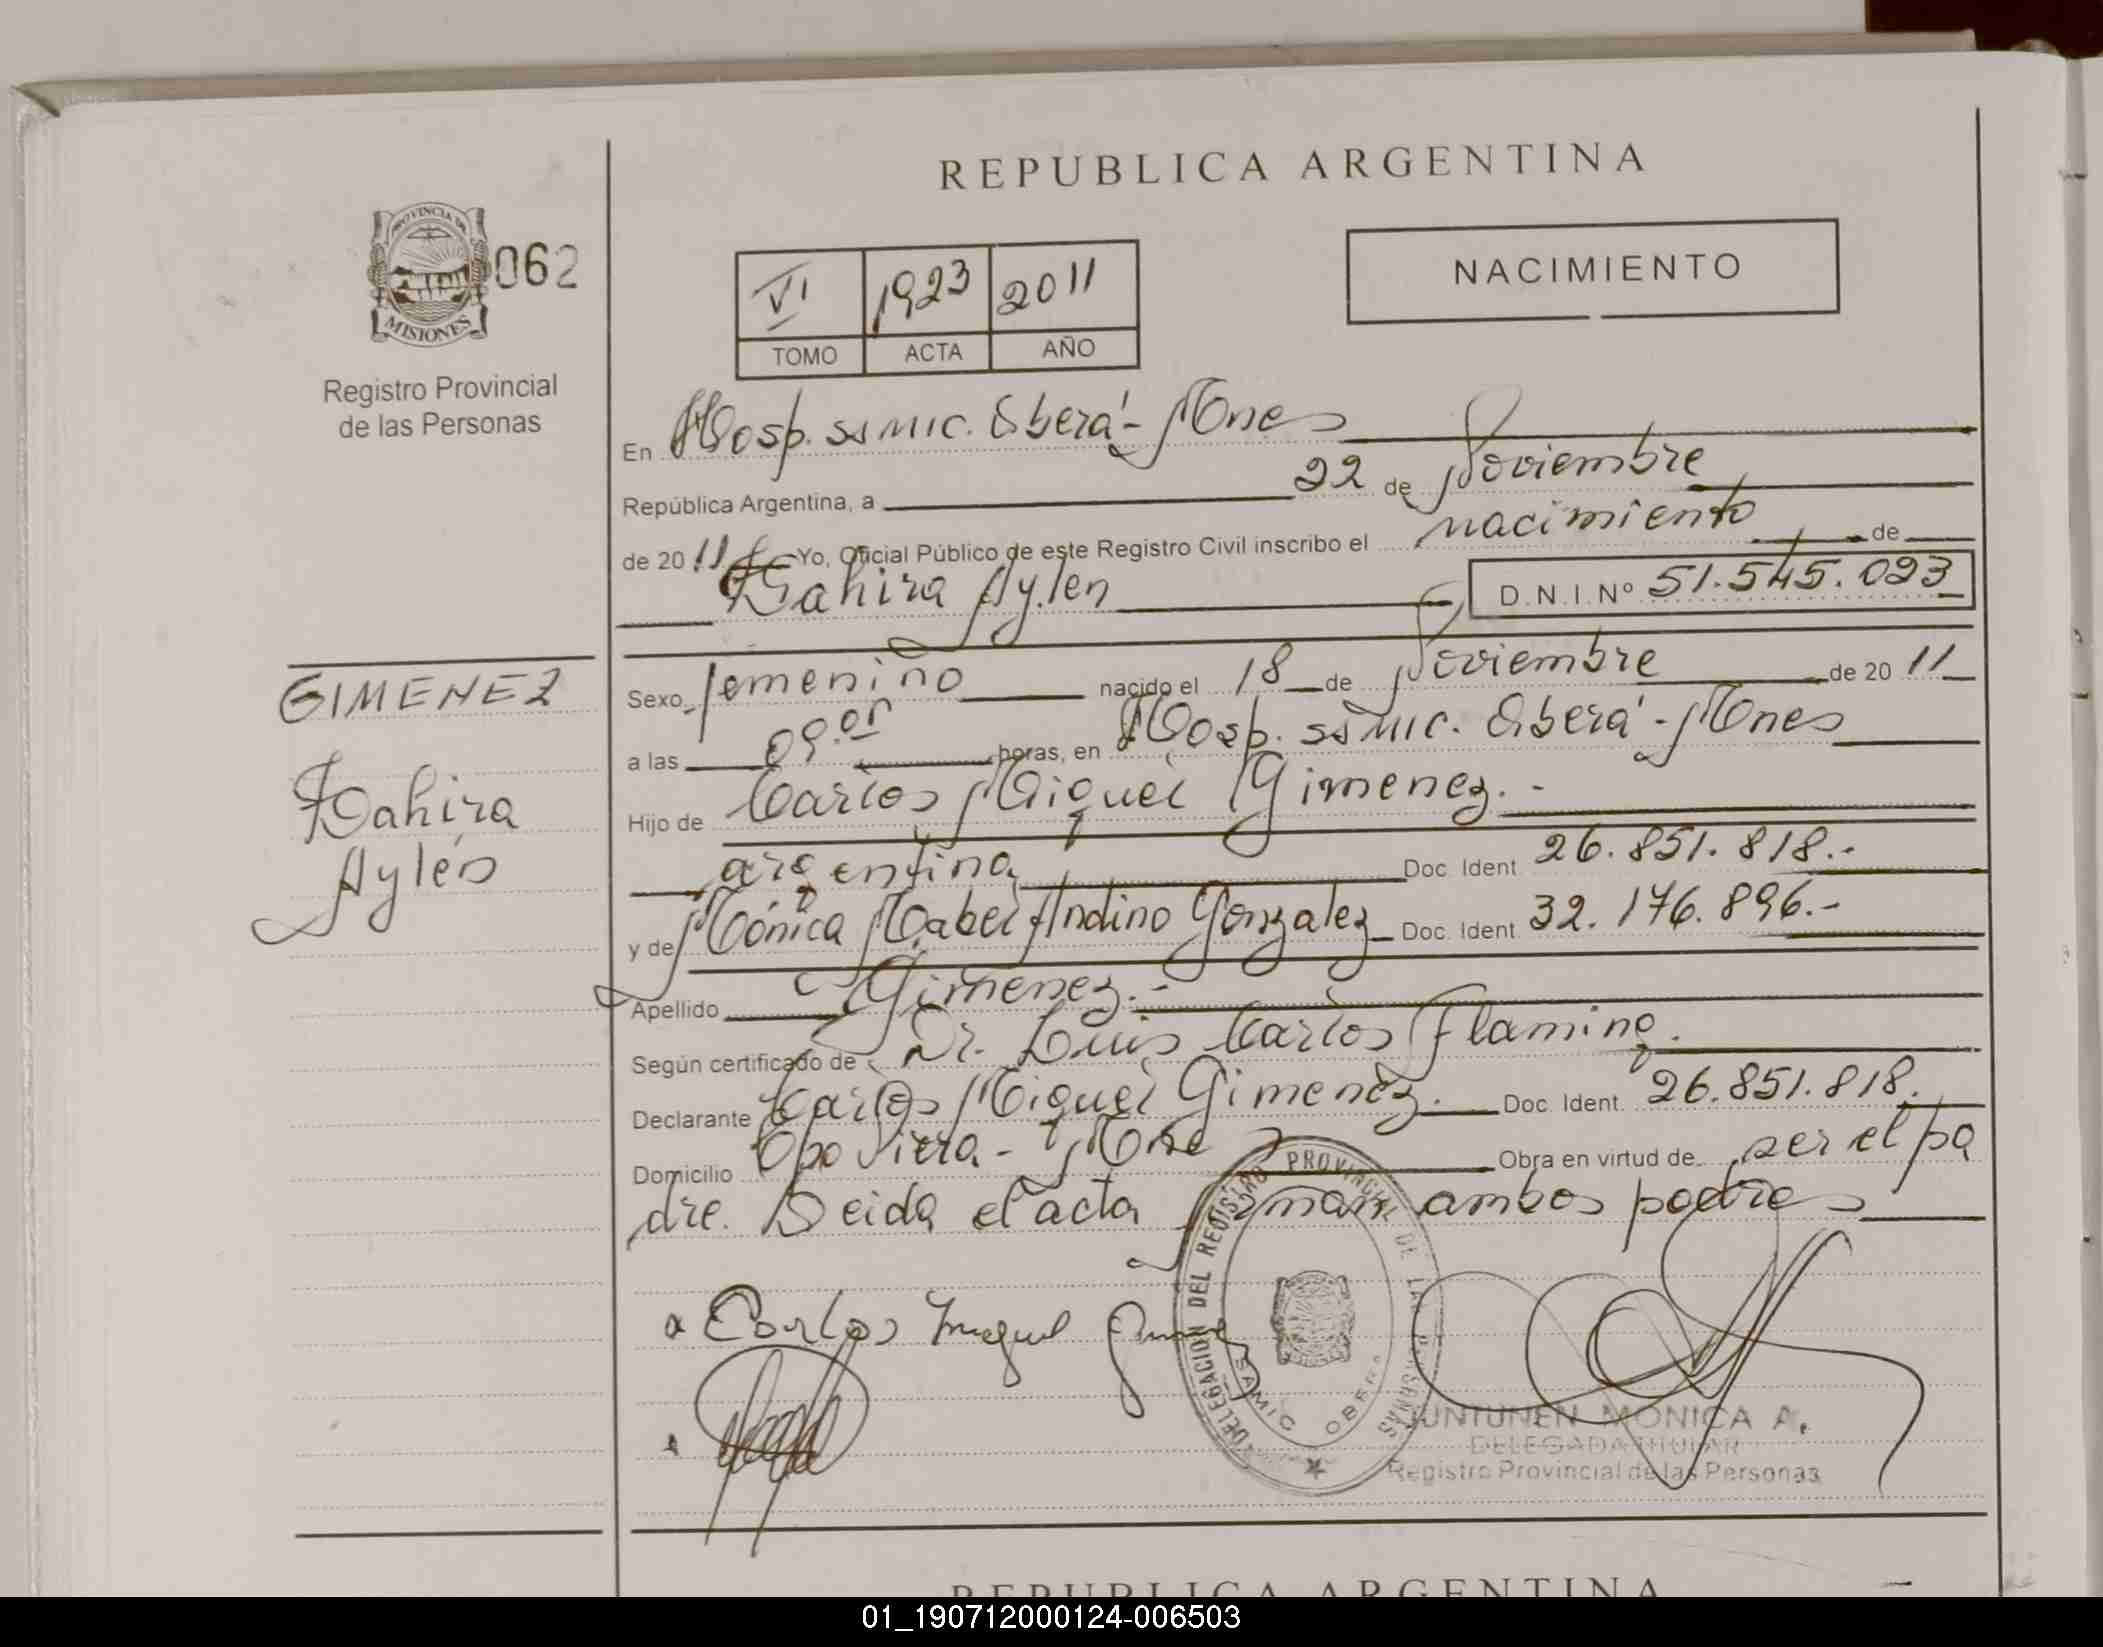 REPUBLICA ARGENTINA
PROVINCIA DE
MISIONES
062
Registro Provincial
de las Personas
NACIMIENTO
VI 1923 2011
TOMO ACTA AÑO
En Hosp. SAMIC. Oberá - Mnes
República Argentina, a 22 de Noviembre
de 2011 Yo, Oficial Público de este Registro Civil inscribo el nacimiento de
Dahira Aylen D.N.I. Nº 51.545.093
GIMENEZ
Dahira
Aylen
Sexo femenino nacido el 18 de Noviembre de 2011
a las 09. horas, en Hosp. SAMIC. Oberá - Mnes
Hijo de Carlos Miguel Gimenez.-
argentina Doc. Ident 26.851.818.-
y de Mónica Mabel Andino Gonzalez Doc. Ident 32.176.896.-
Apellido Gimenez.-
Según certificado de Dr. Luis Carlos Flamino.
Declarante Carlos Miguel Gimenez. Doc. Ident. 26.851.818.
Domicilio Cpo Viera - Mnes Obra en virtud de ser el pa
dre. Leida el acta firman ambos padres
x Carlos Miguel
SUBDELEGACION DEL REGISTRO PROVINCIAL DE LAS PERSONAS
SAMIC OBERA
JUNTUNEN MONICA A.
DELEGADA TITULAR
Registro Provincial de las Personas
REPUBLICA ARGENTINA
01_190712000124-006503